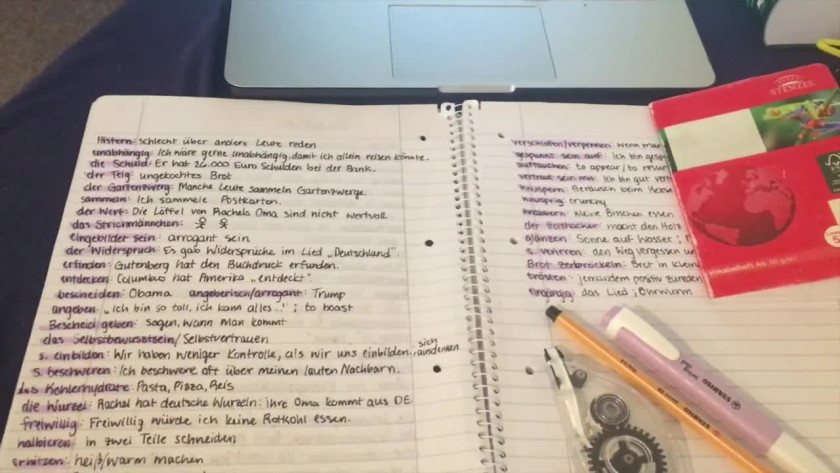 lästern: schlecht über andere Leute reden
unabhängig: Ich wäre gerne unabhängig, damit ich allein reisen könnte.
die Schuld: Er hat 26.000 Euro Schulden bei der Bank.
der Teig: ungekochtes Brot
der Gartenzwerg: Manche Leute sammeln Gartenzwerge.
sammeln: Ich sammele Postkarten.
der Wert: Die Löffel von Rachels Oma sind nicht wertvoll
das Strichmännchen:
eingebildet sein: arrogant sein
der Widerspruch: Es gab Widersprüche im Lied „Deutschland"
erfinden: Gutenberg hat den Buchdruck erfunden.
entdecken: Columbus hat Amerika „entdeckt"
bescheiden: Obama angeberisch/arrogant: Trump
angeben: „ich bin so toll, ich kann alles..!"; to boast
Bescheid geben: sagen, wann man kommt
das Selbstbewusstsein/Selbstvertrauen
s. einbilden: Wir haben weniger Kontrolle, als wir uns einbilden, sich ausdenken
s. beschweren: Ich beschwere oft über meinen lauten Nachbarn.
das Kohlerhydrate: Pasta, Pizza, Reis
die Wurzel: Rachel hat deutsche Wurzeln: ihre Oma kommt aus DE
freiwillig: Freiwillig würde ich keine Rotkohl essen.
halbieren: in zwei Teile schneiden
erhitzen: heiß/warm machen
verschlafen/verpennen: Wenn man
gespannt sein auf: Ich bin gesp
auftauchen: to appear/to
vertraut sein mit: Ich bin gut vert
knuspern: Geräusch beim
knusprig: crunchy
kleine Bisschen essen
macht den Holz
glänzen: Sonne auf Wasser;
s. verirren: den Weg vergessen un
Brot zerbröckeln: Brot in klein
trösten: jemandem positiv zureden
eingängig: das Lied; Ohrwurm
STENZEL
FSC
Vokabelheft A6
STABILO
STABILO
swing cool